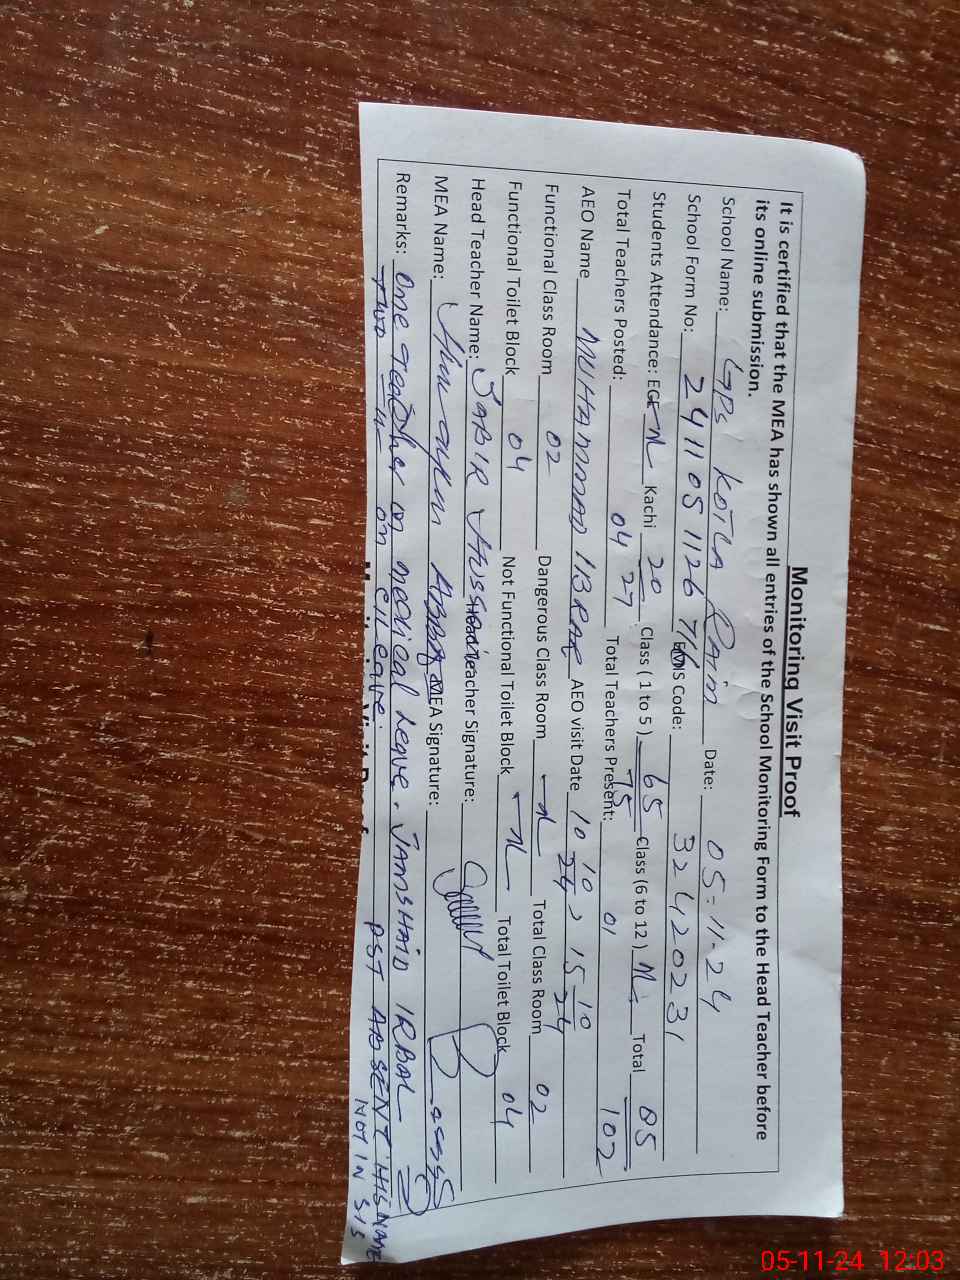 Monitoring Visit Proof
It is certified that the MEA has shown all entries of the School Monitoring Form to the Head Teacher before
its online submission.
School Name: GPS KOTLA RAIM Date: 05-11-24
School Form No: 2411051126 716 EMIS Code: 32420231
Students Attendance: ECE Kachi 20 Class (1 to 5) 65 Class (6 to 12) Total 85
27 75 102
Total Teachers Posted: 04 Total Teachers Present: 01
AEO Name MUHAMMAD IBRAR AEO visit Date 10 10/24, 15 10/24
Functional Class Room 02 Dangerous Class Room Total Class Room 02
Functional Toilet Block 04 Not Functional Toilet Block Total Toilet Block 04
Head Teacher Name: SABIR HUSSAIN Head Teacher Signature:
MEA Name: ABBAS MEA Signature:
Remarks: One teacher on medical leave. JAMSHAID IQBAL
Two on C/leave. PST ABSENT HIS NAME
NOT IN SIS
05-11-24 12:03